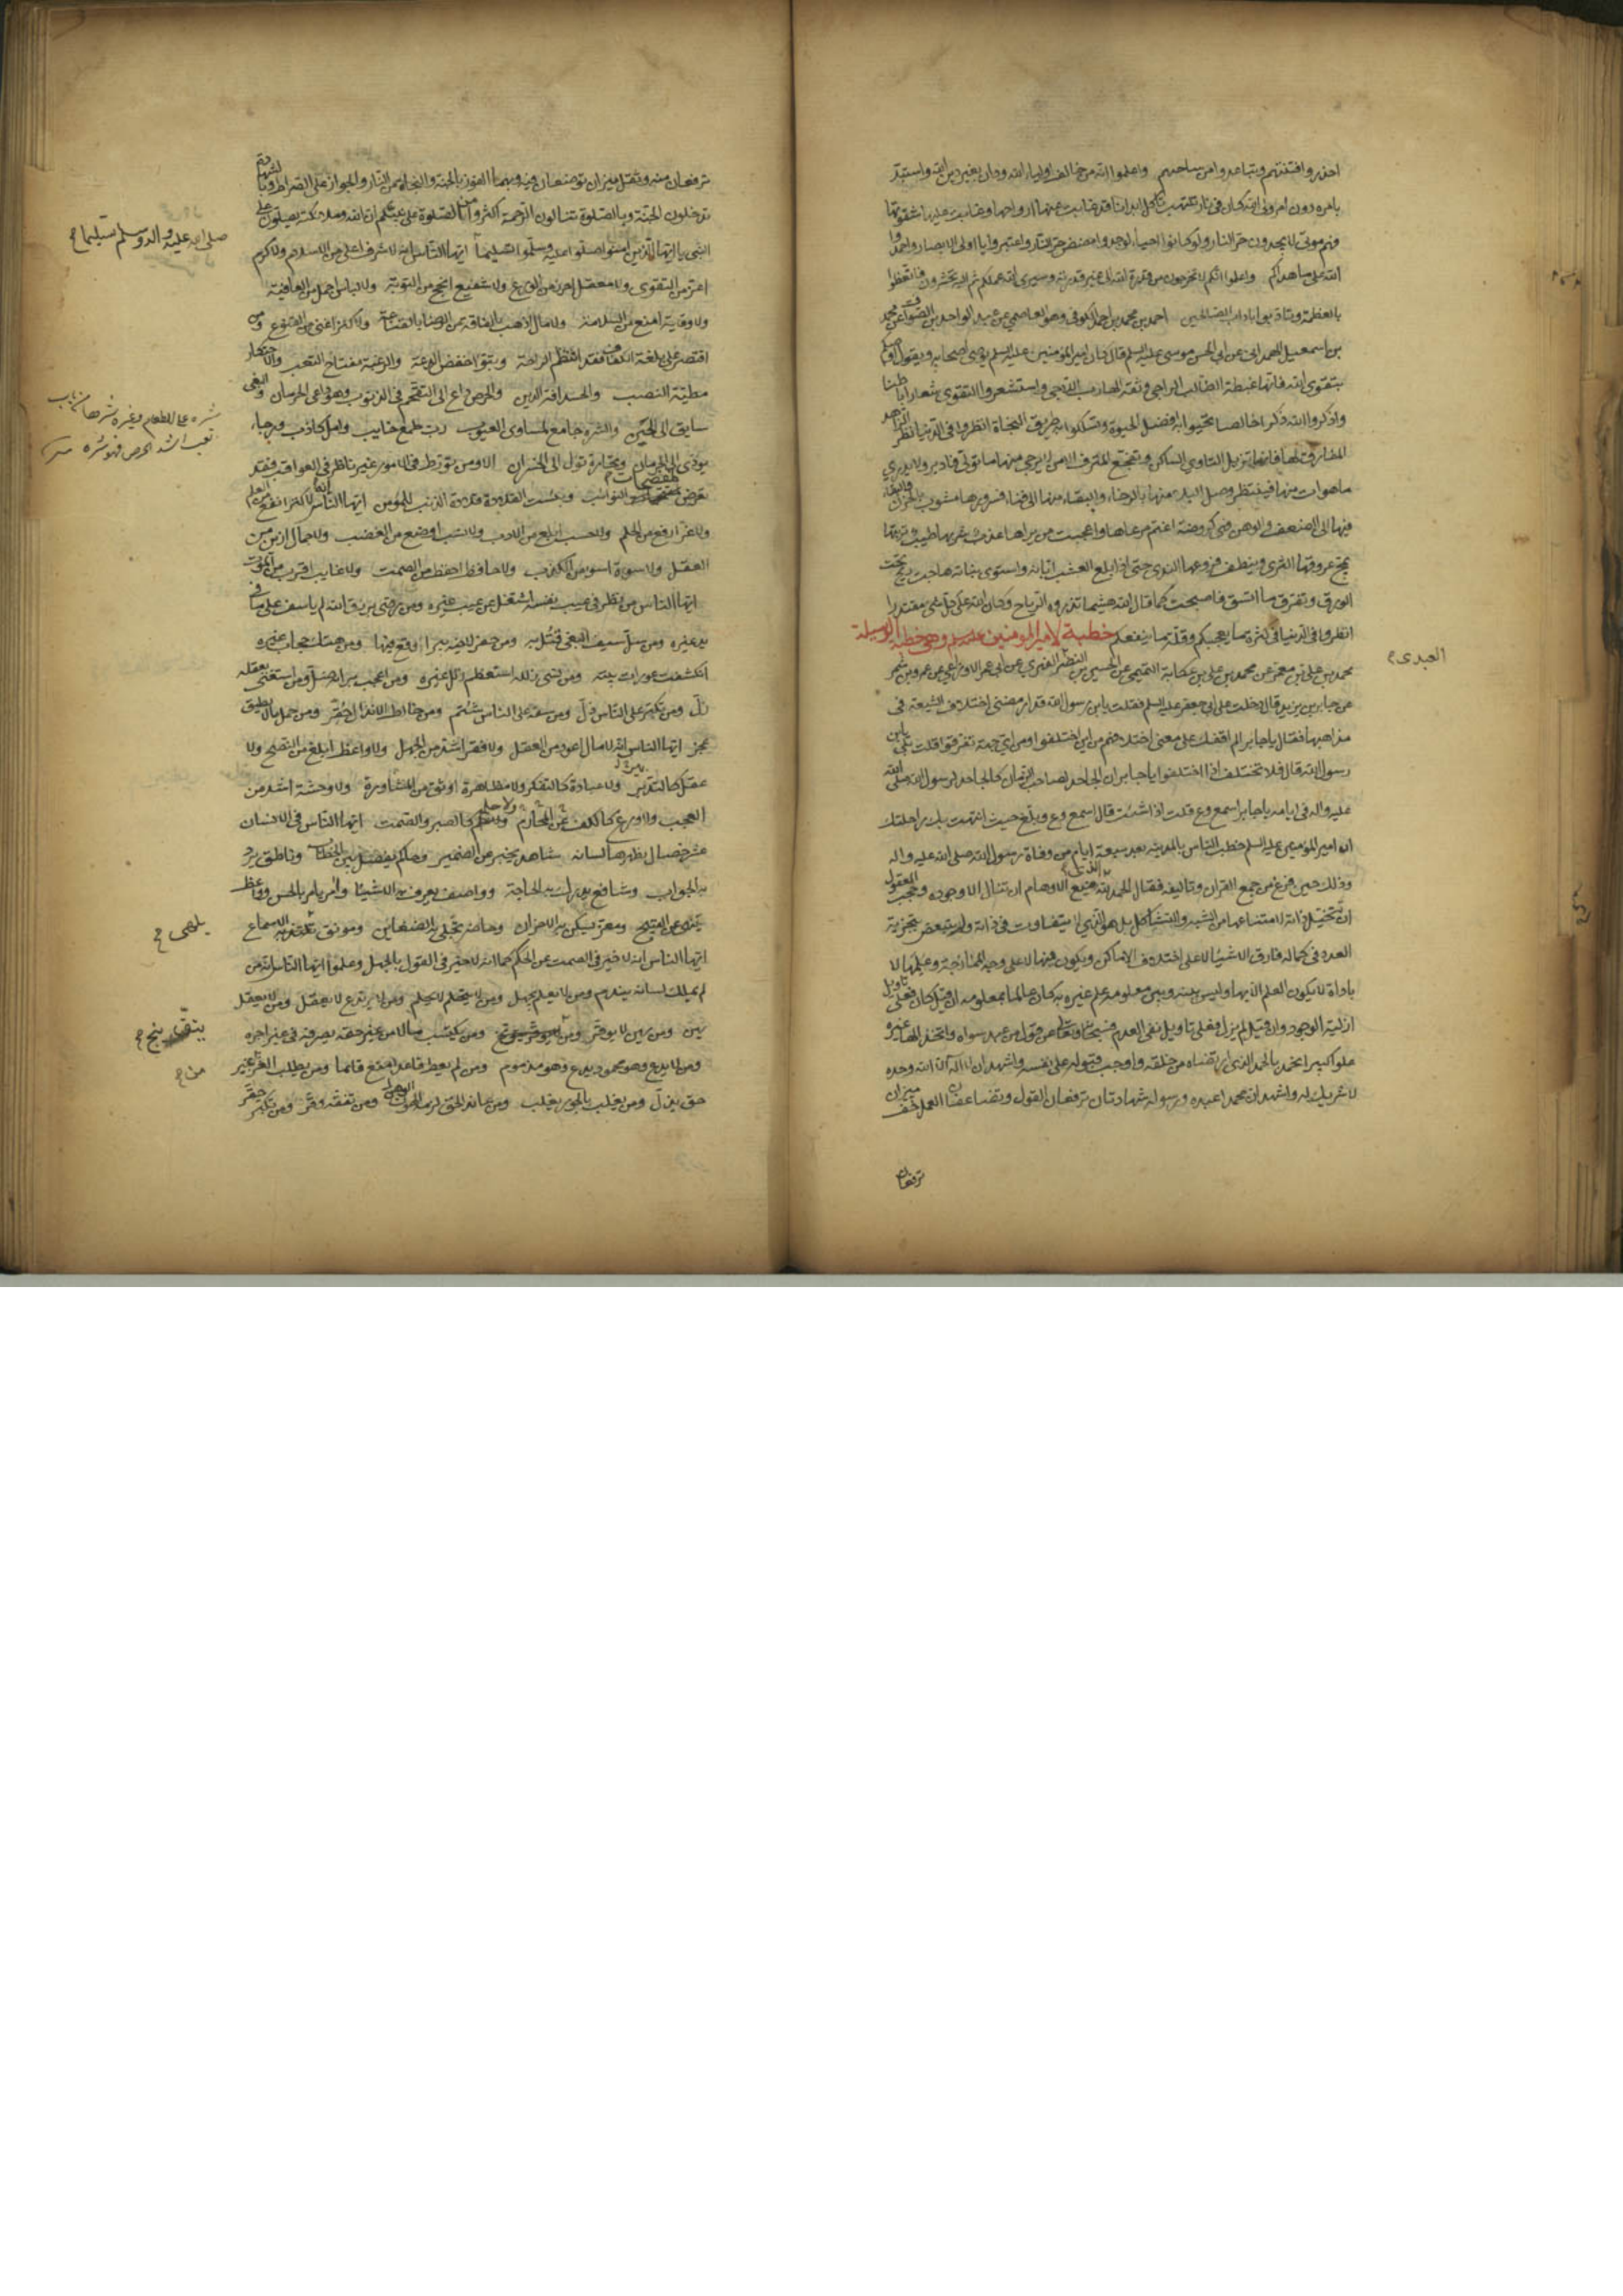 احذروا فتنتهم وتباعدوا من ساحتهم واعلموا انه من خالف اولياء الله ودان بغير دين الله واستبد
بامره دون امر ولي الله كان في نار تلتهب تاكل ابدانا قد غابت عنها ارواحها وغلبت عليها شقوتها
فهم موتى لا يجدون حر النار ولو كانوا احياء لوجدوا مضض حر النار واعتبروا يا اولي الابصار واحمدوا
الله على ما هداكم واعلموا انكم لا تخرجون من قدرة الله الى غير قدرته وسيرى الله عملكم ثم اليه تحشرون فاتعظوا
بالعظة وتادبوا باداب الصالحين احمد بن محمد بن احمد الكوفي وهو العاصمي عن عبد الواحد بن الصواف عن محمد
بن اسمعيل الهمداني عن ابي الحسن موسى عليه السلم قال كان امير المؤمنين عليه السلم يوصي اصحابه ويقول اوصيكم
بتقوى الله فانها غبطة الطالب الراجي وثقة الهارب اللاجي واستشعروا التقوى شعارا باطنا
واذكروا الله ذكرا خالصا تحيوا به افضل الحيوة وتسلكوا به طريق النجاة انظروا في الدنيا نظر الزاهد
المفارق لها فانها تزيل الثاوي الساكن وتفجع المترف الامن لا يرجى منها ما تولى فادبر ولا يدري
ما هو ات منها فينتظر وصل البلاء منها بالرخاء والبقاء منها الى فناء فسرورها مشوب بالحزن والبقاء
فيها الى الضعف والوهن فهي كروضة اعتم مرعاها واعجبت من يراها عذب شربها طيب تربتها
تمج عروقها الثرى وينطف فروعها الندى حتى اذا بلغ العشب ابانه واستوى بنانه هاجت ريح تحت
الورق وتفرق ما اتسق فاصبحت كما قال الله هشيما تذروه الرياح وكان الله على كل شئ مقتدرا
انظروا في الدنيا في كثرة ما يعجبكم وقلة ما ينفعكم خطبة لامير المؤمنين عليه السلم وهي خطبة الوسيلة
محمد بن علي بن معمر عن محمد بن علي بن عكاية التميمي عن الحسين بن النضر الفهري عن ابي عمر الاوزاعي عن عمرو بن شمر
العبدي ح
عن جابر بن يزيد قال دخلت على ابي جعفر عليه السلم فقلت يابن رسول الله قد ارمضني اختلاف الشيعة في
مذاهبها فقال يا جابر الم اقفك على معنى اختلافهم من اين اختلفوا ومن اي جهة تفرقوا قلت بلى يابن
رسول الله قال فلا تختلف اذا اختلفوا يا جابر ان الجاحد لصاحب الزمان كالجاحد لرسول الله صلى الله
عليه واله في ايامه يا جابر اسمع وع قلت اذا شئت قال اسمع وع وبلغ حيث انتهت بك راحلتك
ان امير المؤمنين عليه السلم خطب الناس بالمدينة بعد سبعة ايام من وفاة رسول الله صلى الله عليه واله
وذلك حين فرغ من جمع القران وتاليفه فقال الحمد لله الذي منع الاوهام ان تنال الا وجوده وحجب العقول
ان تتخيل ذاته لامتناعها من الشبه والتشاكل بل هو الذي لا يتفاوت في ذاته ولا يتبعض بتجزية
العدد في كماله فارق الاشياء لا على اختلاف الاماكن ويكون فيها لا على وجه الممازجة وعلمها لا
باداة لا يكون العلم الا بها وليس بينه وبين معلومه علم غيره به كان عالما بمعلومه ان قيل كان فعلى تاويل
ازلية الوجود وان قيل لم يزل فعلى تاويل نفي العدم فسبحانه وتعالى عن قول من عبد سواه واتخذ الها غيره
علوا كبيرا نحمده بالحمد الذي ارتضاه من خلقه واوجب قبوله على نفسه واشهد ان لا اله الا الله وحده
لا شريك له واشهد ان محمدا عبده ورسوله شهادتان ترفعان القول وتضاعفان العمل خف ميزان
ترفعان
ترفعان منه وثقل ميزان توضعان فيه وبهما الفوز بالجنة والنجاة من النار والجواز على الصراط وبالشهادة
تدخلون الجنة وبالصلوة تنالون الرحمة اكثروا من الصلوة على نبيكم ان الله وملائكته يصلون على
النبي يا ايها الذين امنوا صلوا عليه وسلموا تسليما ايها الناس انه لا شرف اعلى من الاسلام ولا كرم
صلى الله عليه واله وسلم تسليما ح
اعز من التقوى ولا معقل احرز من الورع ولا شفيع انجح من التوبة ولا لباس اجمل من العافية
ولا وقاية امنع من السلامة ولا مال اذهب بالفاقة من الرضا بالقناعة ولا كنز اغنى من القنوع ومن
اقتصر على بلغة الكفاف فقد انتظم الراحة وتبوا خفض الدعة والرغبة مفتاح التعب والاحتكار
مطية النصب والحسد افة الدين والحرص داع الى التقحم في الذنوب وهو داعي الحرمان والبغي
سايق الى الحين والشره جامع لمساوي العيوب رب طمع خايب وامل كاذب ورجاء
يؤدي الى الحرمان وتجارة تول الى الخسران الا ومن تورط في الامور غير ناظر في العواقب فقد
تعرض لمفضحات النوائب وبئست القلادة قلادة الذنب للمؤمن ايها الناس انه لا كنز انفع من العلم
ولا عز ارفع من الحلم ولا حسب ابلغ من الادب ولا نسب اوضع من الغضب ولا جمال ازين من
العقل ولا سوءة اسوء من الكذب ولا حافظ احفظ من الصمت ولا غايب اقرب من الموت
ايها الناس من نظر في عيب نفسه اشتغل عن عيب غيره ومن رضي برزق الله لم ياسف على ما في
يد غيره ومن سل سيف البغي قتل به ومن حفر لاخيه بئرا وقع فيها ومن هتك حجاب غيره
انكشفت عورات بيته ومن نسي زلله استعظم زلل غيره ومن اعجب برايه ضل ومن استغنى بعقله
زل ومن تكبر على الناس ذل ومن سفه على الناس شتم ومن خالط الانذال حقر ومن حمل ما لا يطيق
عجز ايها الناس انه لا مال اعود من العقل ولا فقر اشد من الجهل ولا واعظ ابلغ من النصح ولا
عقل كالتدبير ولا عبادة كالتفكر ولا مظاهرة اوثق من المشاورة ولا وحشة اشد من
العجب ولا ورع كالكف عن المحارم ولا حلم كالصبر والصمت ايها الناس في الانسان
عشر خصال يظهرها لسانه شاهد يخبر عن الضمير وحاكم يفصل بين الخطاب وناطق يرد
به الجواب وشافع يدرك به الحاجة وواصف يعرف به الاشياء وامر يامر بالحسن وواعظ
ينهى عن القبيح ومعز يسكن به الاحزان وحاضر تجلى به الضغاين ومونق تلتذ به الاسماع
يلهى ح
ايها الناس انه لا خير في الصمت عن الحكم كما انه لا خير في القول بالجهل وعلموا ايها الناس انه من
لم يملك لسانه يندم ومن لا يعلم يجهل ومن لا يتحلم لا يحلم ومن لا يرتدع لا يعقل ومن لا يعقل
يهن ومن يهن لا يوقر ومن ومن يكتسب مالا من غير حقه يصرفه في غير اجره
ينج ح
ومن لا يدع وهو محمود يدع وهو مذموم ومن لم يعط قاعدا منع قائما ومن يطلب العز بغير
حق يذل ومن يغلب بالجور يغلب ومن عاند الحق لزمه الوهن ومن تفقه وقر ومن تكبر حقر